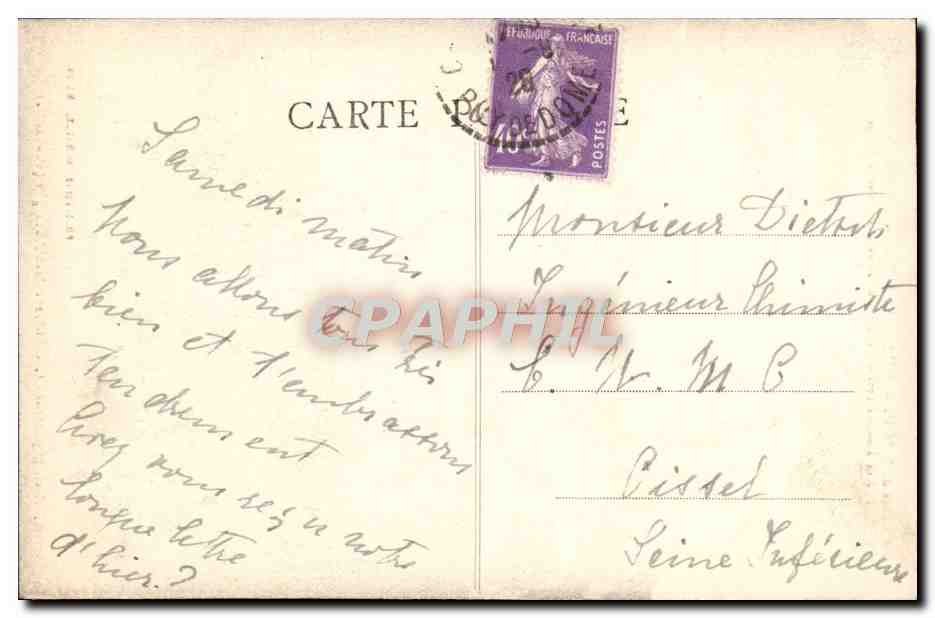 CARTE P E
REPUBLIQUE FRANÇAISE
POSTES
28
PUY DE DOME
Samedi matin
Nous allons tous très
bien et t'embrassons
tendrement
Avez vous reçu notre
longue lettre
d'hier?
CPAPHIL
Monsieur
Ingénieur Chimiste
C. N. M C
Oissel
Seine Inférieure